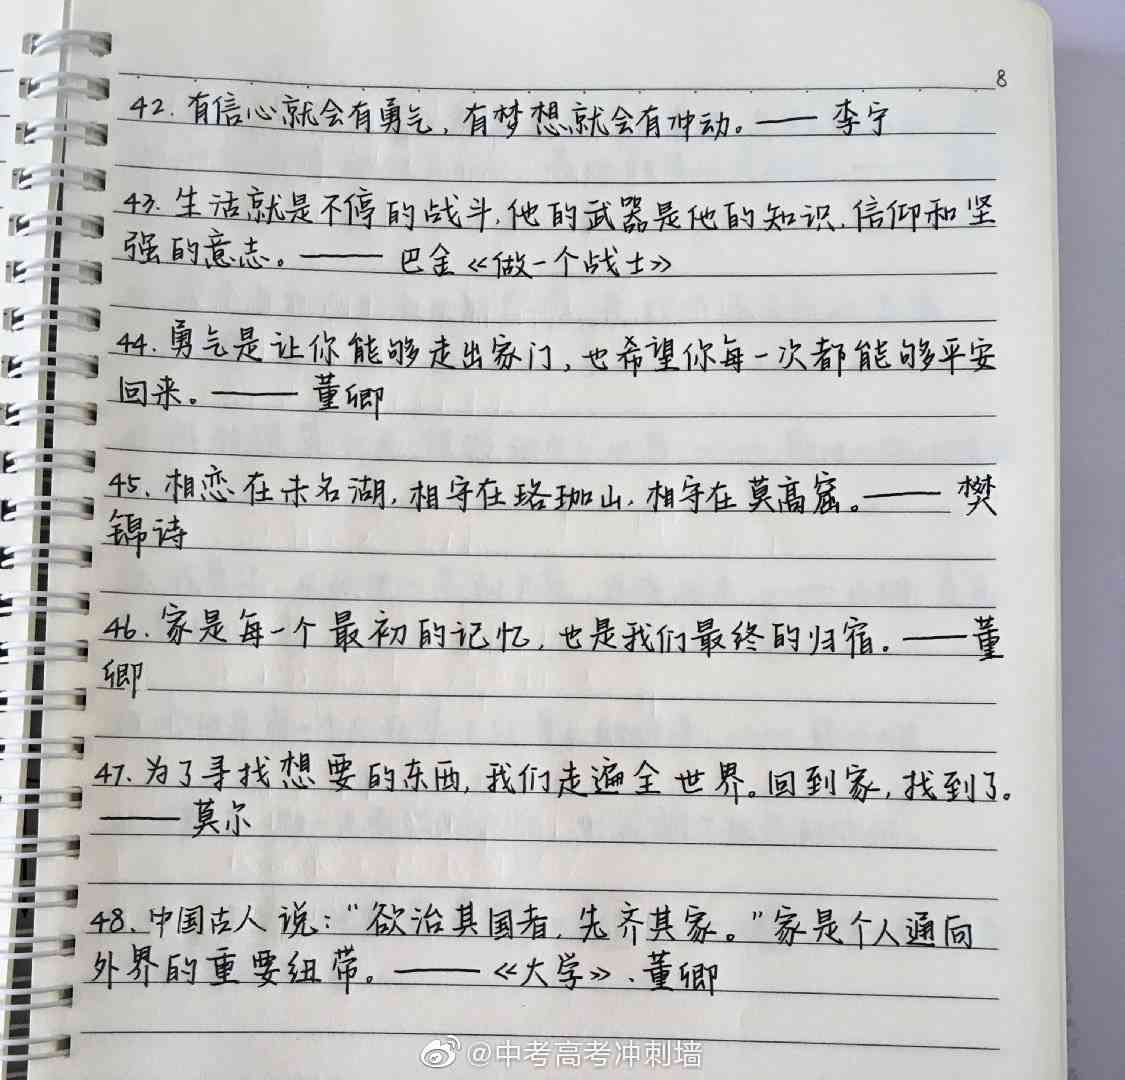 8
42. 有信心就会有勇气, 有梦想就会有冲动。—— 李宁
43. 生活就是不停的战斗, 他的武器是他的知识, 信仰和坚
强的意志。—— 巴金《做一个战士》
44. 勇气是让你能够走出家门, 也希望你每一次都能够平安
回来。—— 董卿
45. 相恋在未名湖, 相守在珞珈山, 相守在莫高窟。—— 樊
锦诗
46. 家是每一个最初的记忆, 也是我们最终的归宿。—— 董
卿
47. 为了寻找想要的东西, 我们走遍全世界。回到家, 找到了。
—— 莫尔
48. 中国古人说: “欲治其国者, 先齐其家。”家是个人通向
外界的重要纽带。—— 《大学》、董卿
@中考高考冲刺墙